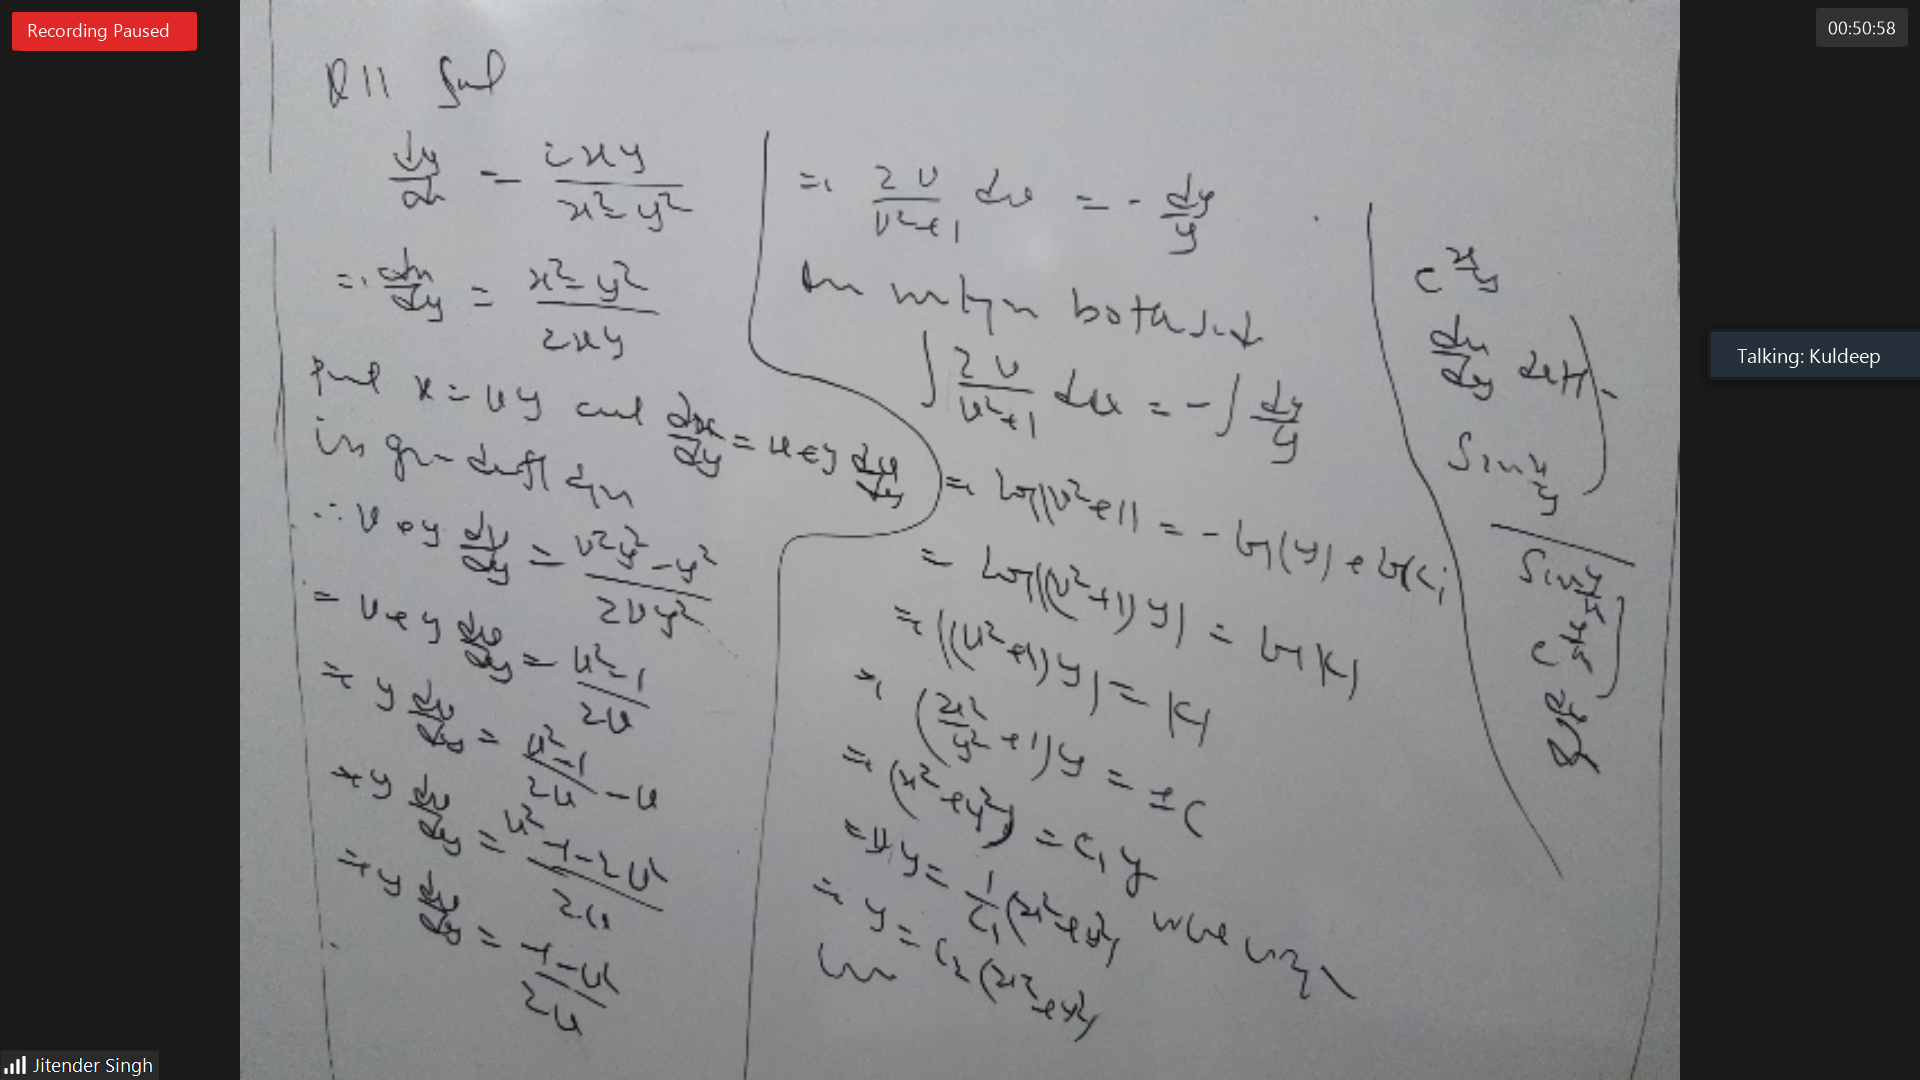 Recording Paused
00:50:58
Q11 Sol
dy/dx = 2xy/(x²-y²)
=> dx/dy = (x²-y²)/2xy
put x = vy and dx/dy = v+y dv/dy
in diff eqn
∴ v+y dv/dy = (v²y²-y²)/2vy²
= v+y dv/dy = (v²-1)/2v
=> y dv/dy = (v²-1)/2v - v
=> y dv/dy = (v²-1-2v²)/2v
=> y dv/dy = (-1-v²)/2v
=> 2v/(v²+1) dv = - dy/y
both
∫ 2v/(v²+1) dv = -∫ dy/y
=> log|v²+1| = -log|y| + log C₁
= log|(v²+1)y| = log K₁
=> |(v²+1)y| = K₁
=> (x²/y²+1)y = ±C
=> (x²+y²) = C₁y
=> y = 1/C₁ (x²+y²) where
=> y = C₂(x²+y²)
e^(x/y)
dx/dy
Sin x/y
Sin y/x
e^(y/x)
Talking: Kuldeep
Jitender Singh